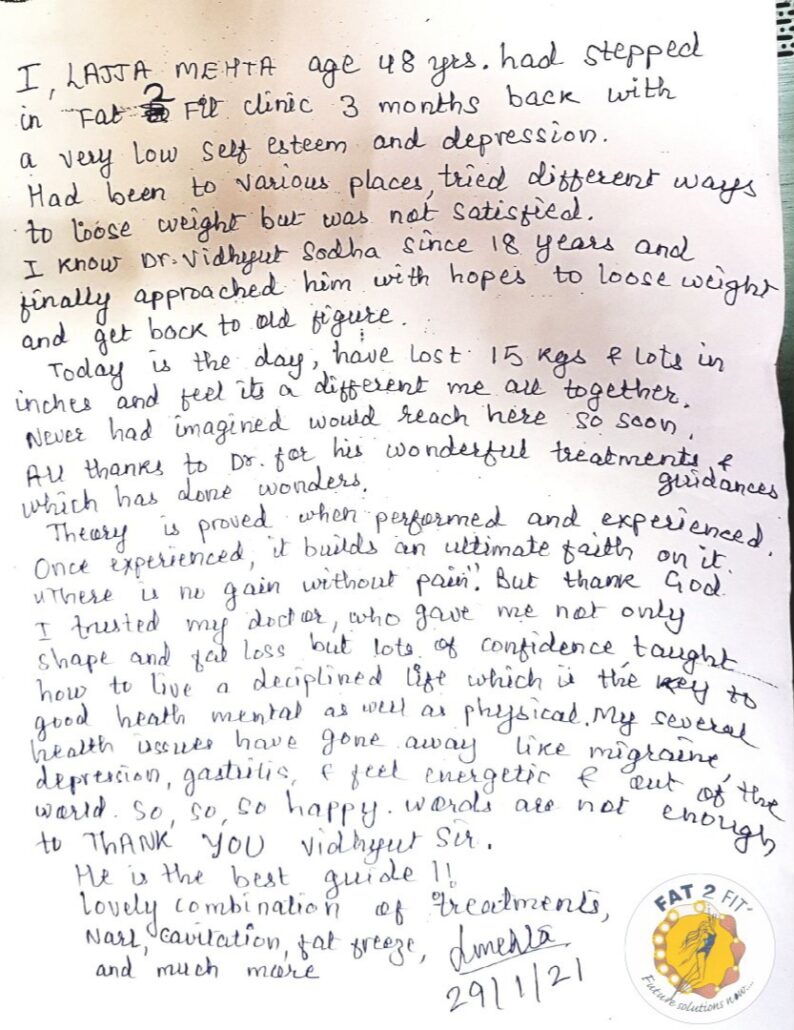 I, LAJJA MEHTA age 48 yrs. had stepped
in Fat 2 Fit clinic 3 months back with
a very low self esteem and depression.
Had been to various places, tried different ways
to loose weight but was not satisfied.
I know Dr. Vidhyut Sodha since 18 years and
finally approached him with hopes to loose weight
and get back to old figure.
Today is the day, have lost 15 kgs & lots in
inches and feel its a different me all together.
Never had imagined would reach here so soon.
All thanks to Dr. for his wonderful treatments &
guidances
which has done wonders.
Theory is proved when performed and experienced.
Once experienced, it builds an ultimate faith on it.
"There is no gain without pain". But thank God
I trusted my doctor, who gave me not only
shape and fat loss but lots of confidence, taught
how to live a deciplined life which is the key to
good heath mental as well as physical. My several
health issues have gone away like migraine,
depression, gastritis, & feel energetic & out of the
world. So, so, so happy. words are not enough
to THANK YOU Vidhyut Sir.
He is the best guide !!
Lovely combination of treatments,
Narl, cavitation, fat freeze, Lmehta
and much more
29/1/21
FAT 2 FIT
Future solutions now....